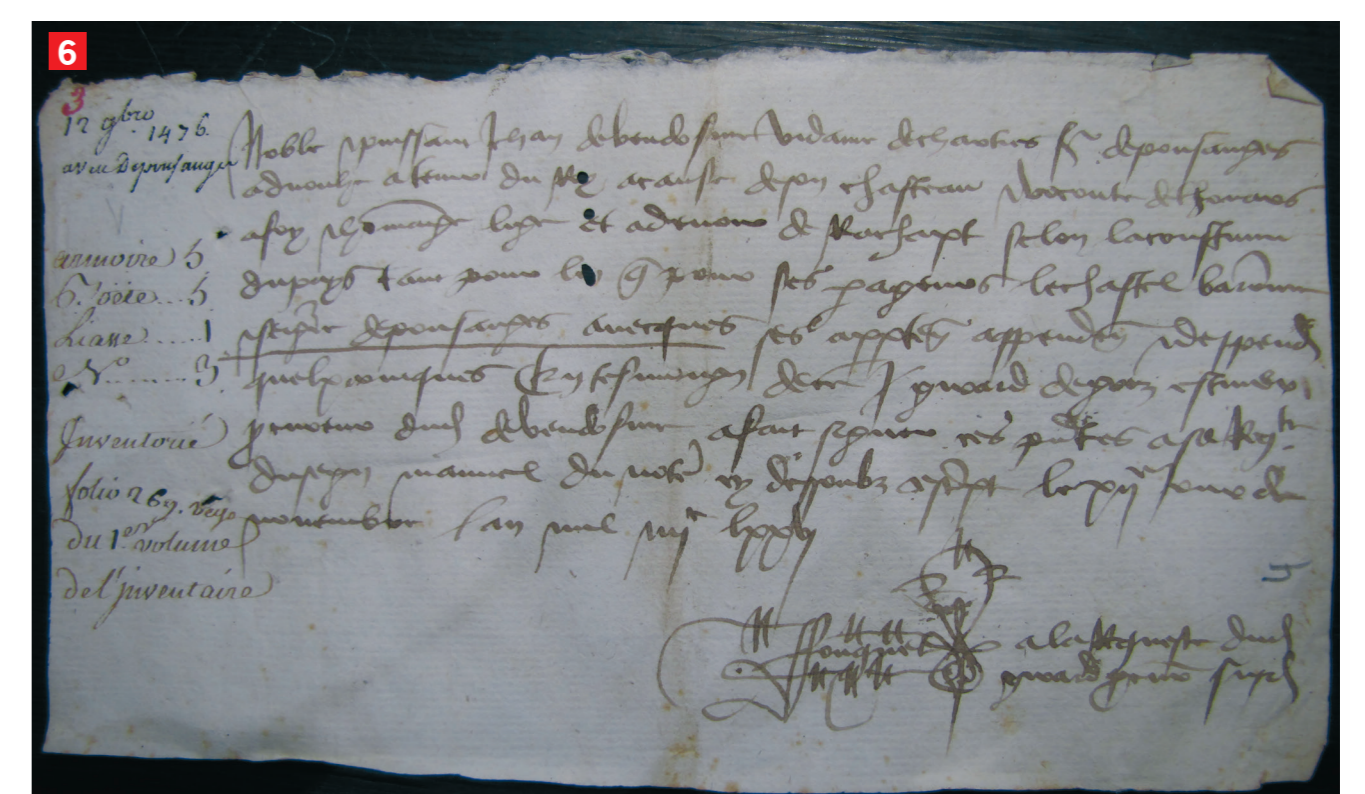 6
3
12 9bre 1476.
aveu De pousauges
armoire 5
5
Liasse ..... 1
No ....... 3
Inventorié
folio 269. Verso
du 1er volume
de l'inventaire
Noble puissant Jehan de vendosme vidame de chartres sr de pousauges
advouhe a tenir du Roy a cause de son chasteau viconte de thouars
a foy hommaige lige et a devoir de Rachapt selon la coustume
du pays tant pour luy q pour ses parageurs le chastel baronnie
seigrie de pousauges avecques ses apparten appenden despend
quelxconques En tesmoing de ce
procureur dud de vendosme a fait signer ces pntes a sa Reqte
du seign manuel du notre cy dessoubz escript le xiie jour de
novembre l'an mil iiiic lxxvi
Fouquet
a la Requeste dud
procur susd